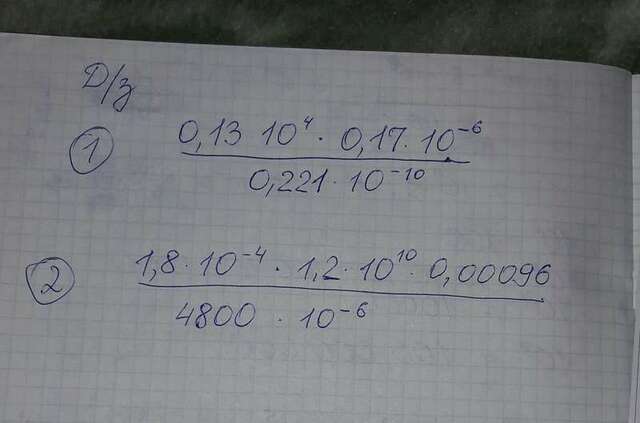 Д/з
1 0,13 10⁴ · 0,17 · 10⁻⁶
0,221 · 10⁻¹⁰
2 1,8 · 10⁻⁴ · 1,2 · 10¹⁰ · 0,00096
4800 · 10⁻⁶